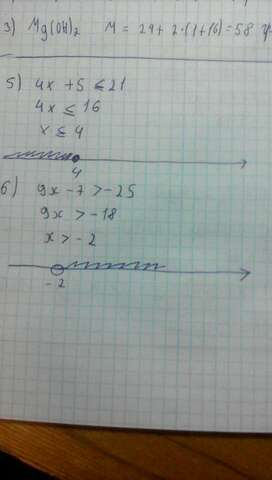 3) Mg(OH)₂ M = 24 + 2·(1+16) = 58
5) 4x + 5 ≤ 21
4x ≤ 16
x ≤ 4
4
6) 9x - 7 > -25
9x > -18
x > -2
-2